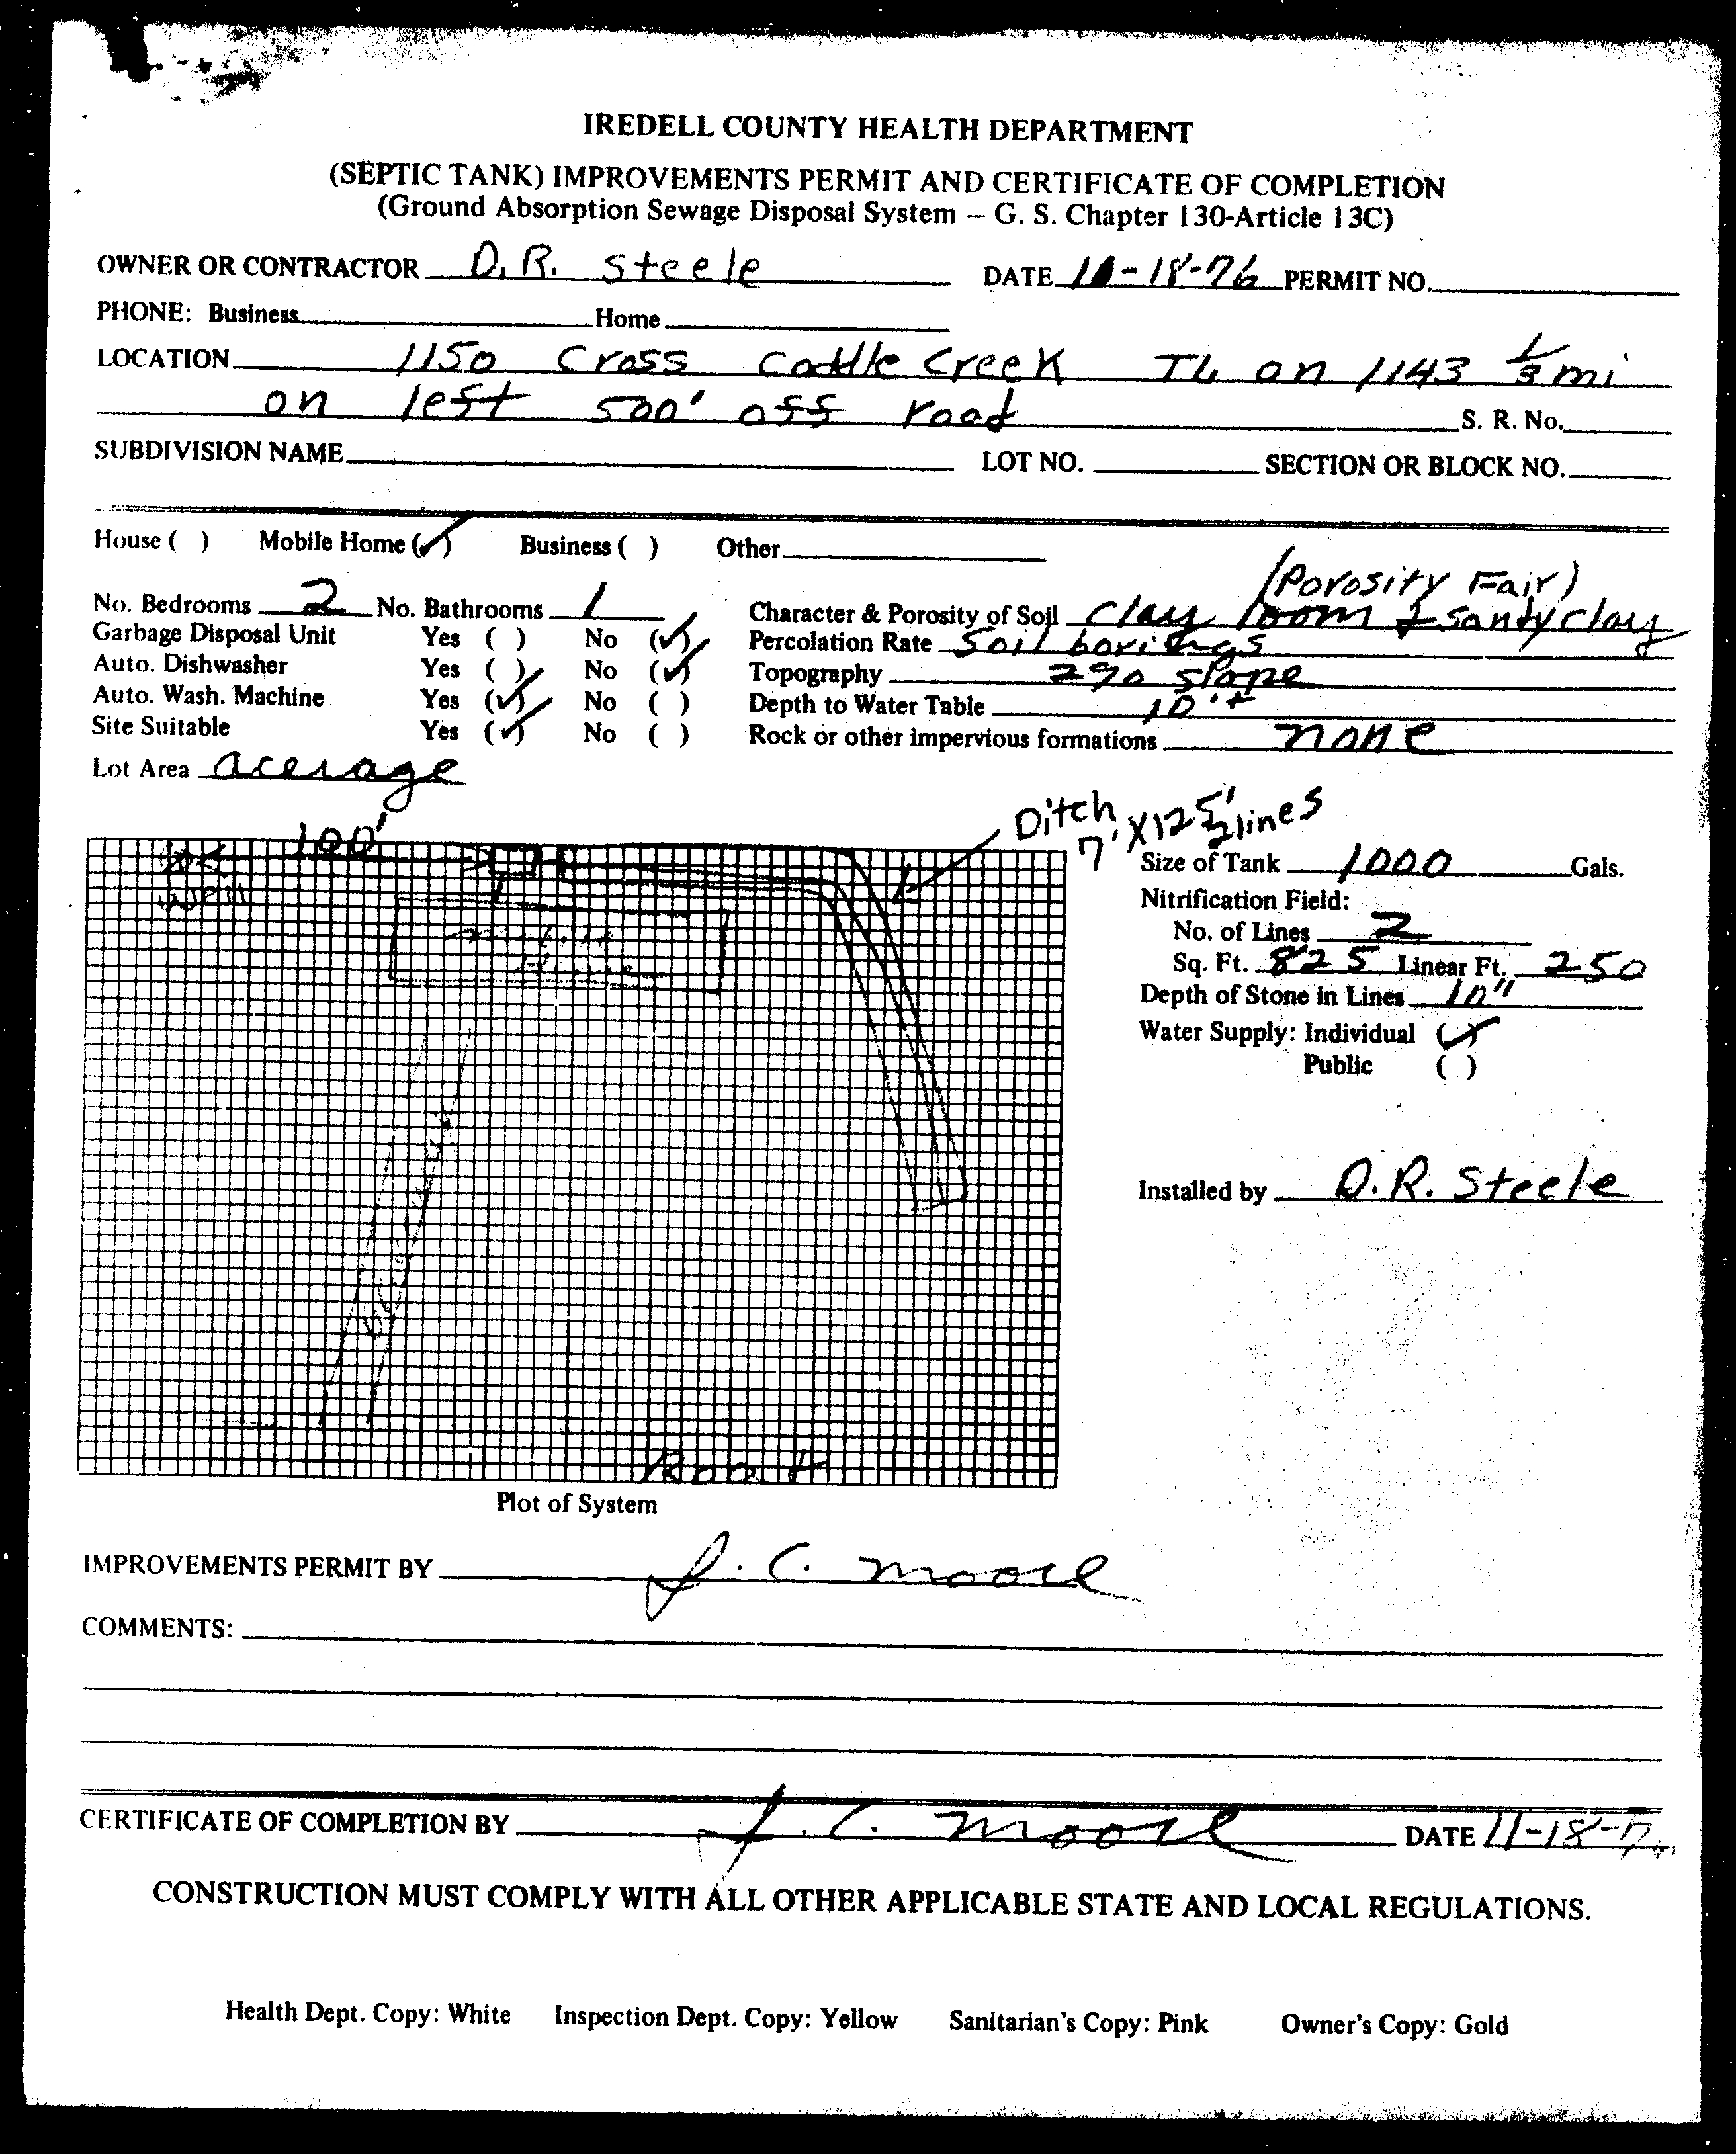 IREDELL COUNTY HEALTH DEPARTMENT
(SEPTIC TANK) IMPROVEMENTS PERMIT AND CERTIFICATE OF COMPLETION
(Ground Absorption Sewage Disposal System – G. S. Chapter 130-Article 13C)
OWNER OR CONTRACTOR D. R. Steele DATE 11-18-76 PERMIT NO.
PHONE: Business Home
LOCATION 1150 Cross Coddle Creek TL on 1143 1/3 mi
on left 500' off road S. R. No.
SUBDIVISION NAME LOT NO. SECTION OR BLOCK NO.
House ( ) Mobile Home (✓) Business ( ) Other
(Porosity Fair)
No. Bedrooms 2 No. Bathrooms 1 Character & Porosity of Soil Clay loom & Sandy clay
Garbage Disposal Unit Yes ( ) No (✓) Percolation Rate Soil borings
Auto. Dishwasher Yes ( ) No (✓) Topography 2% slope
Auto. Wash. Machine Yes (✓) No ( ) Depth to Water Table 10'+
Site Suitable Yes (✓) No ( ) Rock or other impervious formations none
Lot Area acerage
Ditch
7' X 125' 2 lines
100'
Well
Size of Tank 1000 Gals.
Nitrification Field:
No. of Lines 2
Sq. Ft. 825 Linear Ft. 250
Depth of Stone in Lines 10"
Water Supply: Individual (✓)
Public ( )
Installed by D.R. Steele
Road
Plot of System
IMPROVEMENTS PERMIT BY J. C. Moore
COMMENTS:
CERTIFICATE OF COMPLETION BY J. C. Moore DATE 11-18-76
CONSTRUCTION MUST COMPLY WITH ALL OTHER APPLICABLE STATE AND LOCAL REGULATIONS.
Health Dept. Copy: White Inspection Dept. Copy: Yellow Sanitarian's Copy: Pink Owner's Copy: Gold